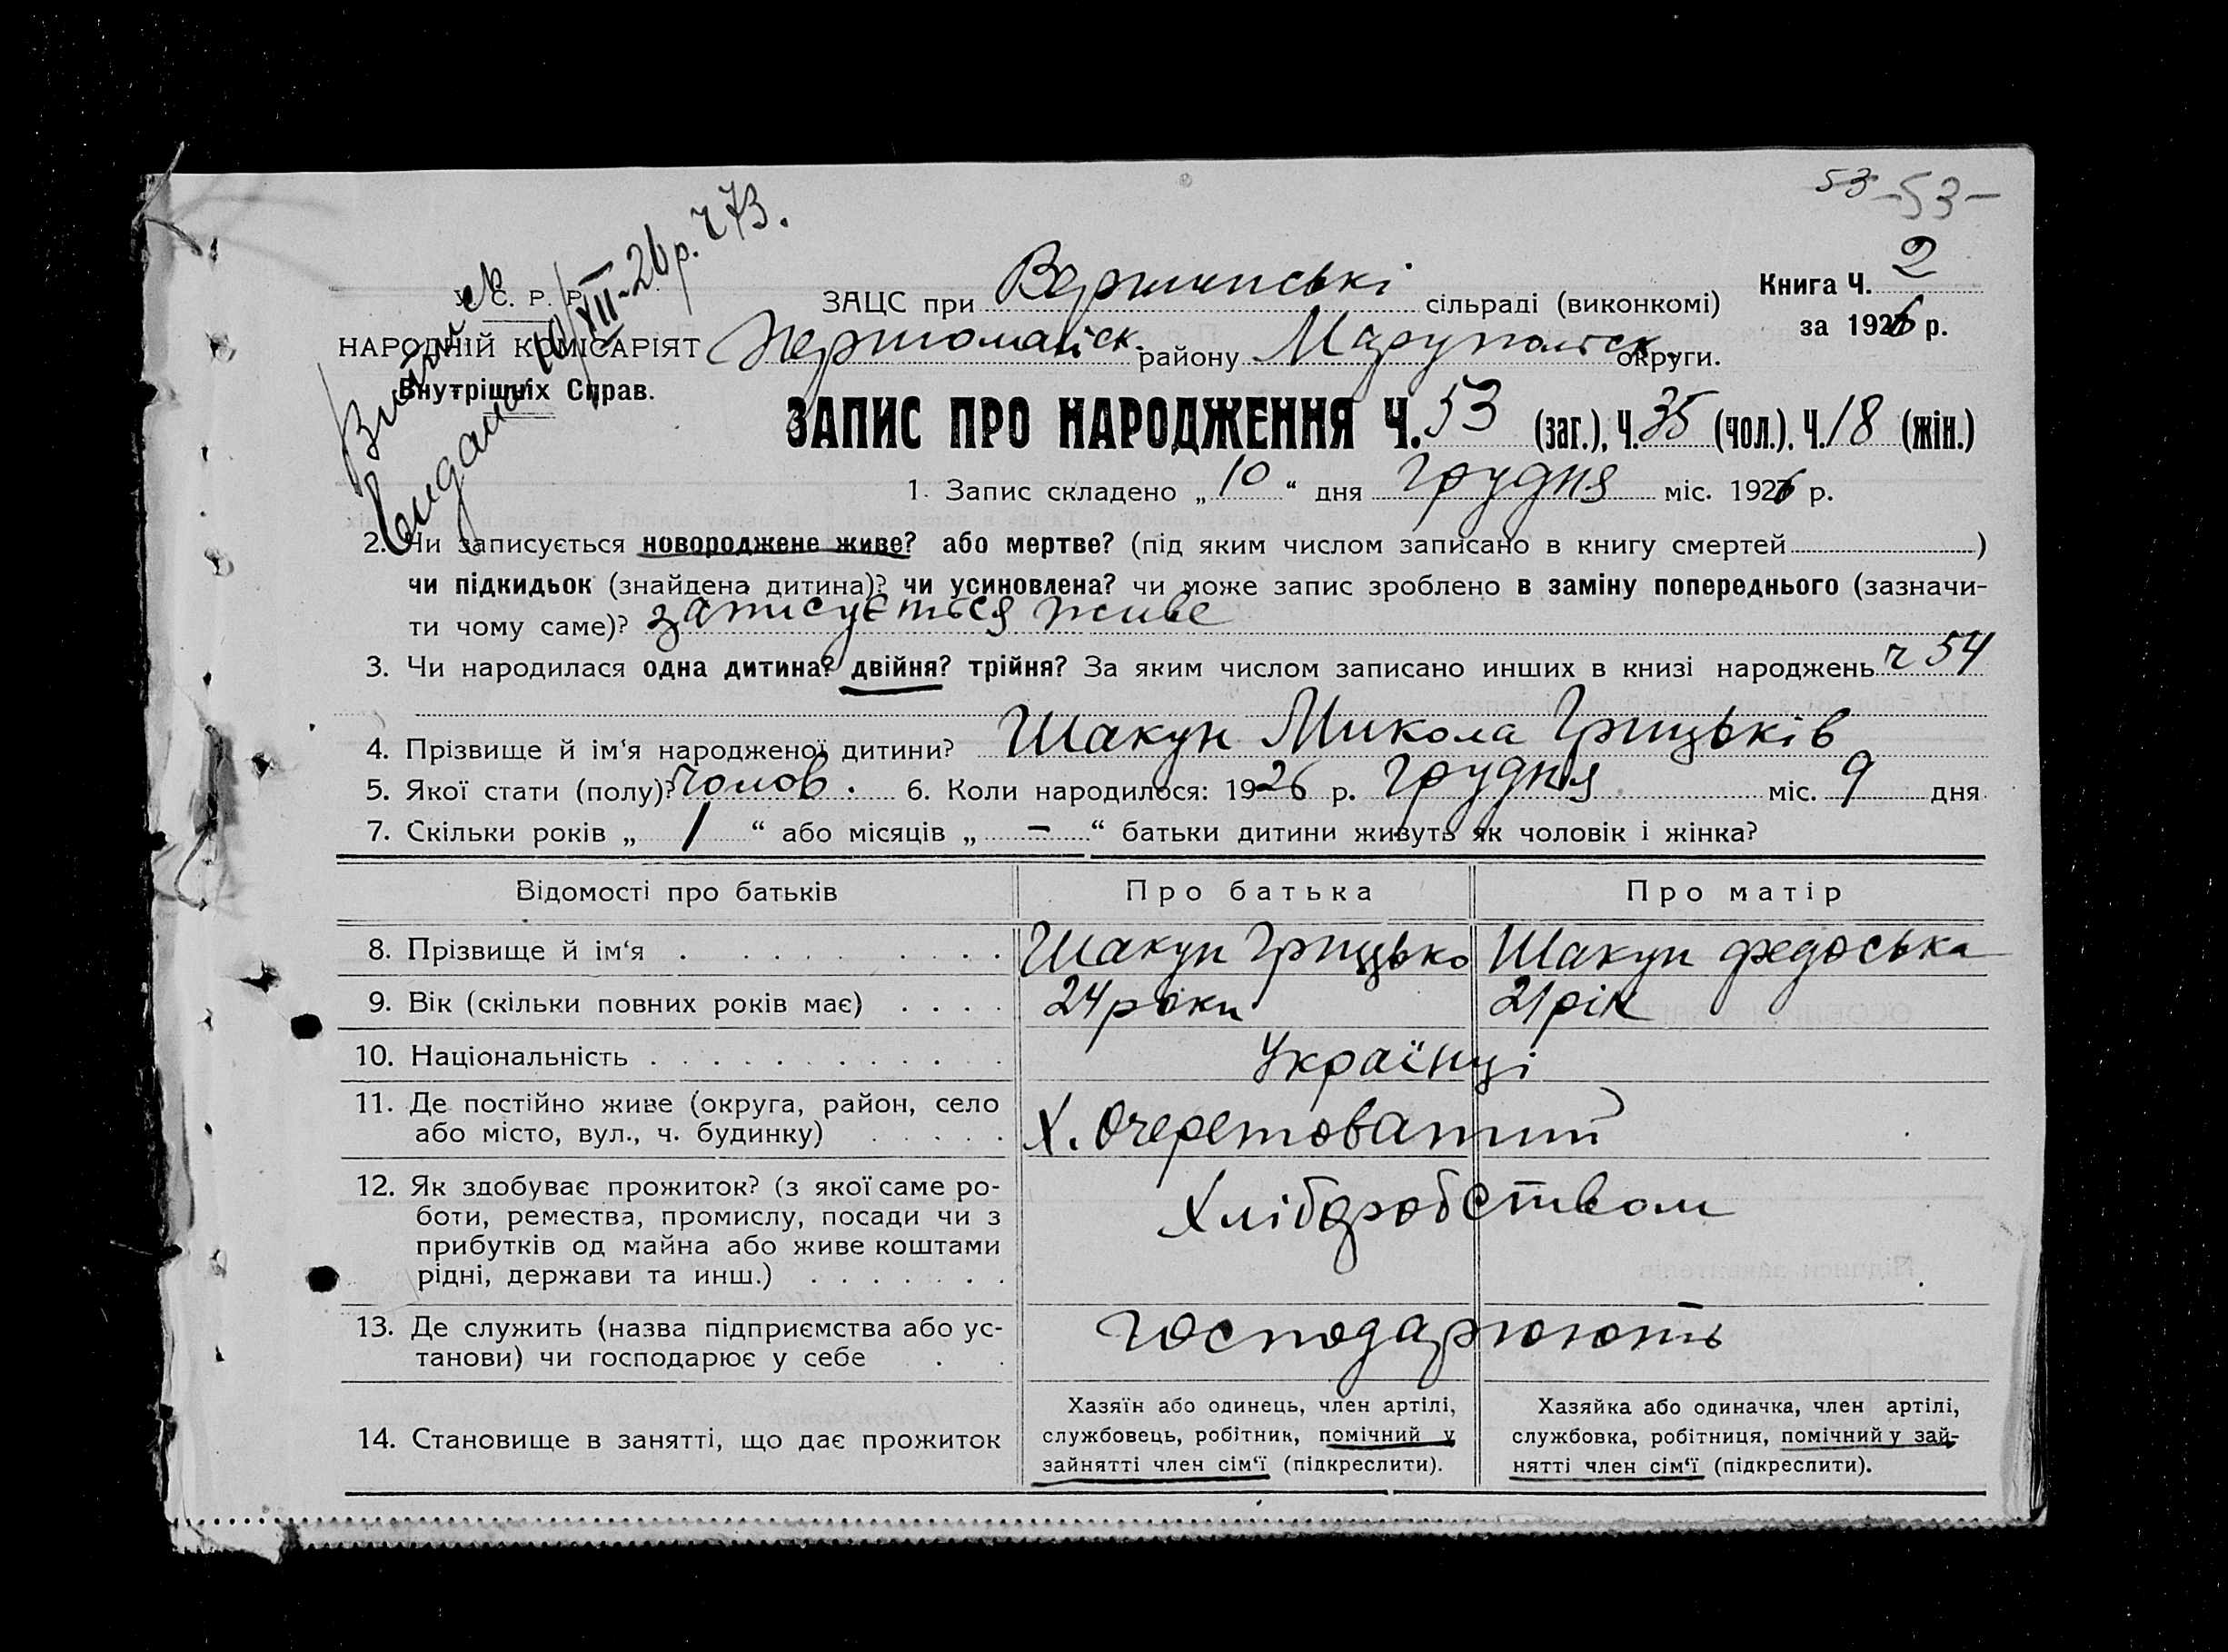 53 -53-
Витяг
видано 10/XII-26 р. ч 73.
У. С. Р. Р.
НАРОДНІЙ КОМІСАРІЯТ
Внутрішніх Справ.
ЗАЦС при Вершинські сільраді (виконкомі)
Першомайськ. району Маруполськ. округи.
Книга Ч. 2
за 1926 р.
ЗАПИС ПРО НАРОДЖЕННЯ Ч. 53 (заг.), Ч. 35 (чол.), Ч. 18 (жін.)
1. Запис складено „ 10 “ дня Грудня міс. 1926 р.
2. Чи записується новороджене живе? або мертве? (під яким числом записано в книгу смертей )
чи підкидьок (знайдена дитина)? чи усиновлена? чи може запис зроблено в заміну попереднього (зазначи-
ти чому саме)? записується живе
3. Чи народилася одна дитина? двійня? трійня? За яким числом записано инших в книзі народжень ч 54
4. Прізвище й ім‘я народженої дитини? Шакун Микола Грицьків
5. Якої стати (полу)? Чолов. 6. Коли народилося: 1926 р. Грудня міс. 9 дня
7. Скільки років „ 1 “ або місяців „ – “ батьки дитини живуть як чоловік і жінка?
Відомості про батьків Про батька Про матір
8. Прізвище й ім‘я Шакун Грицько Шакун Федоська
9. Вік (скільки повних років має) 24 роки 21 рік
10. Національність Українці
11. Де постійно живе (округа, район, село
або місто, вул., ч. будинку) Х. Очеретоватий
12. Як здобуває прожиток? (з якої саме ро-
боти, ремества, промислу, посади чи з
прибутків од майна або живе коштами
рідні, держави та инш.) Хліборобством
13. Де служить (назва підприємства або ус-
танови) чи господарює у себе Господарюють
14. Становище в занятті, що дає прожиток
Хазяїн або одинець, член артілі,
службовець, робітник, помічний у
зайнятті член сім‘ї (підкреслити).
Хазяйка або одиначка, член артілі,
службовка, робітниця, помічний у зай-
нятті член сім‘ї (підкреслити).